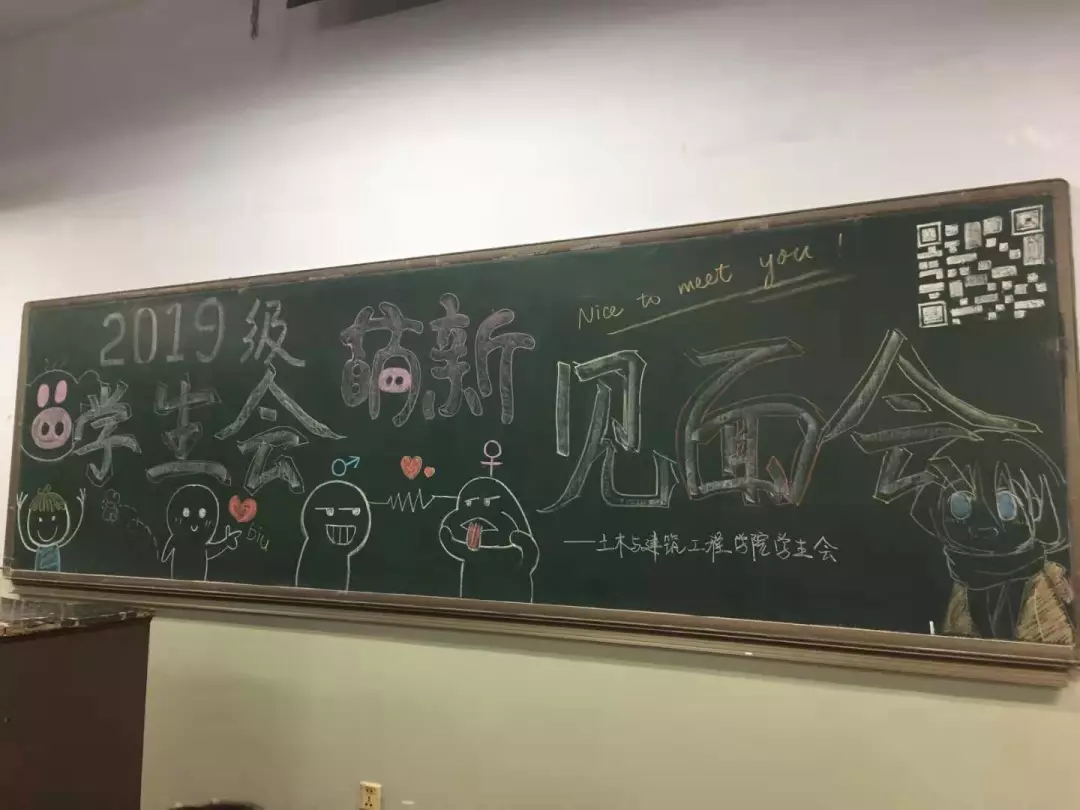 2019级
学生会
萌新
Nice to meet you!
见面会
biu
——土木与建筑工程学院学生会